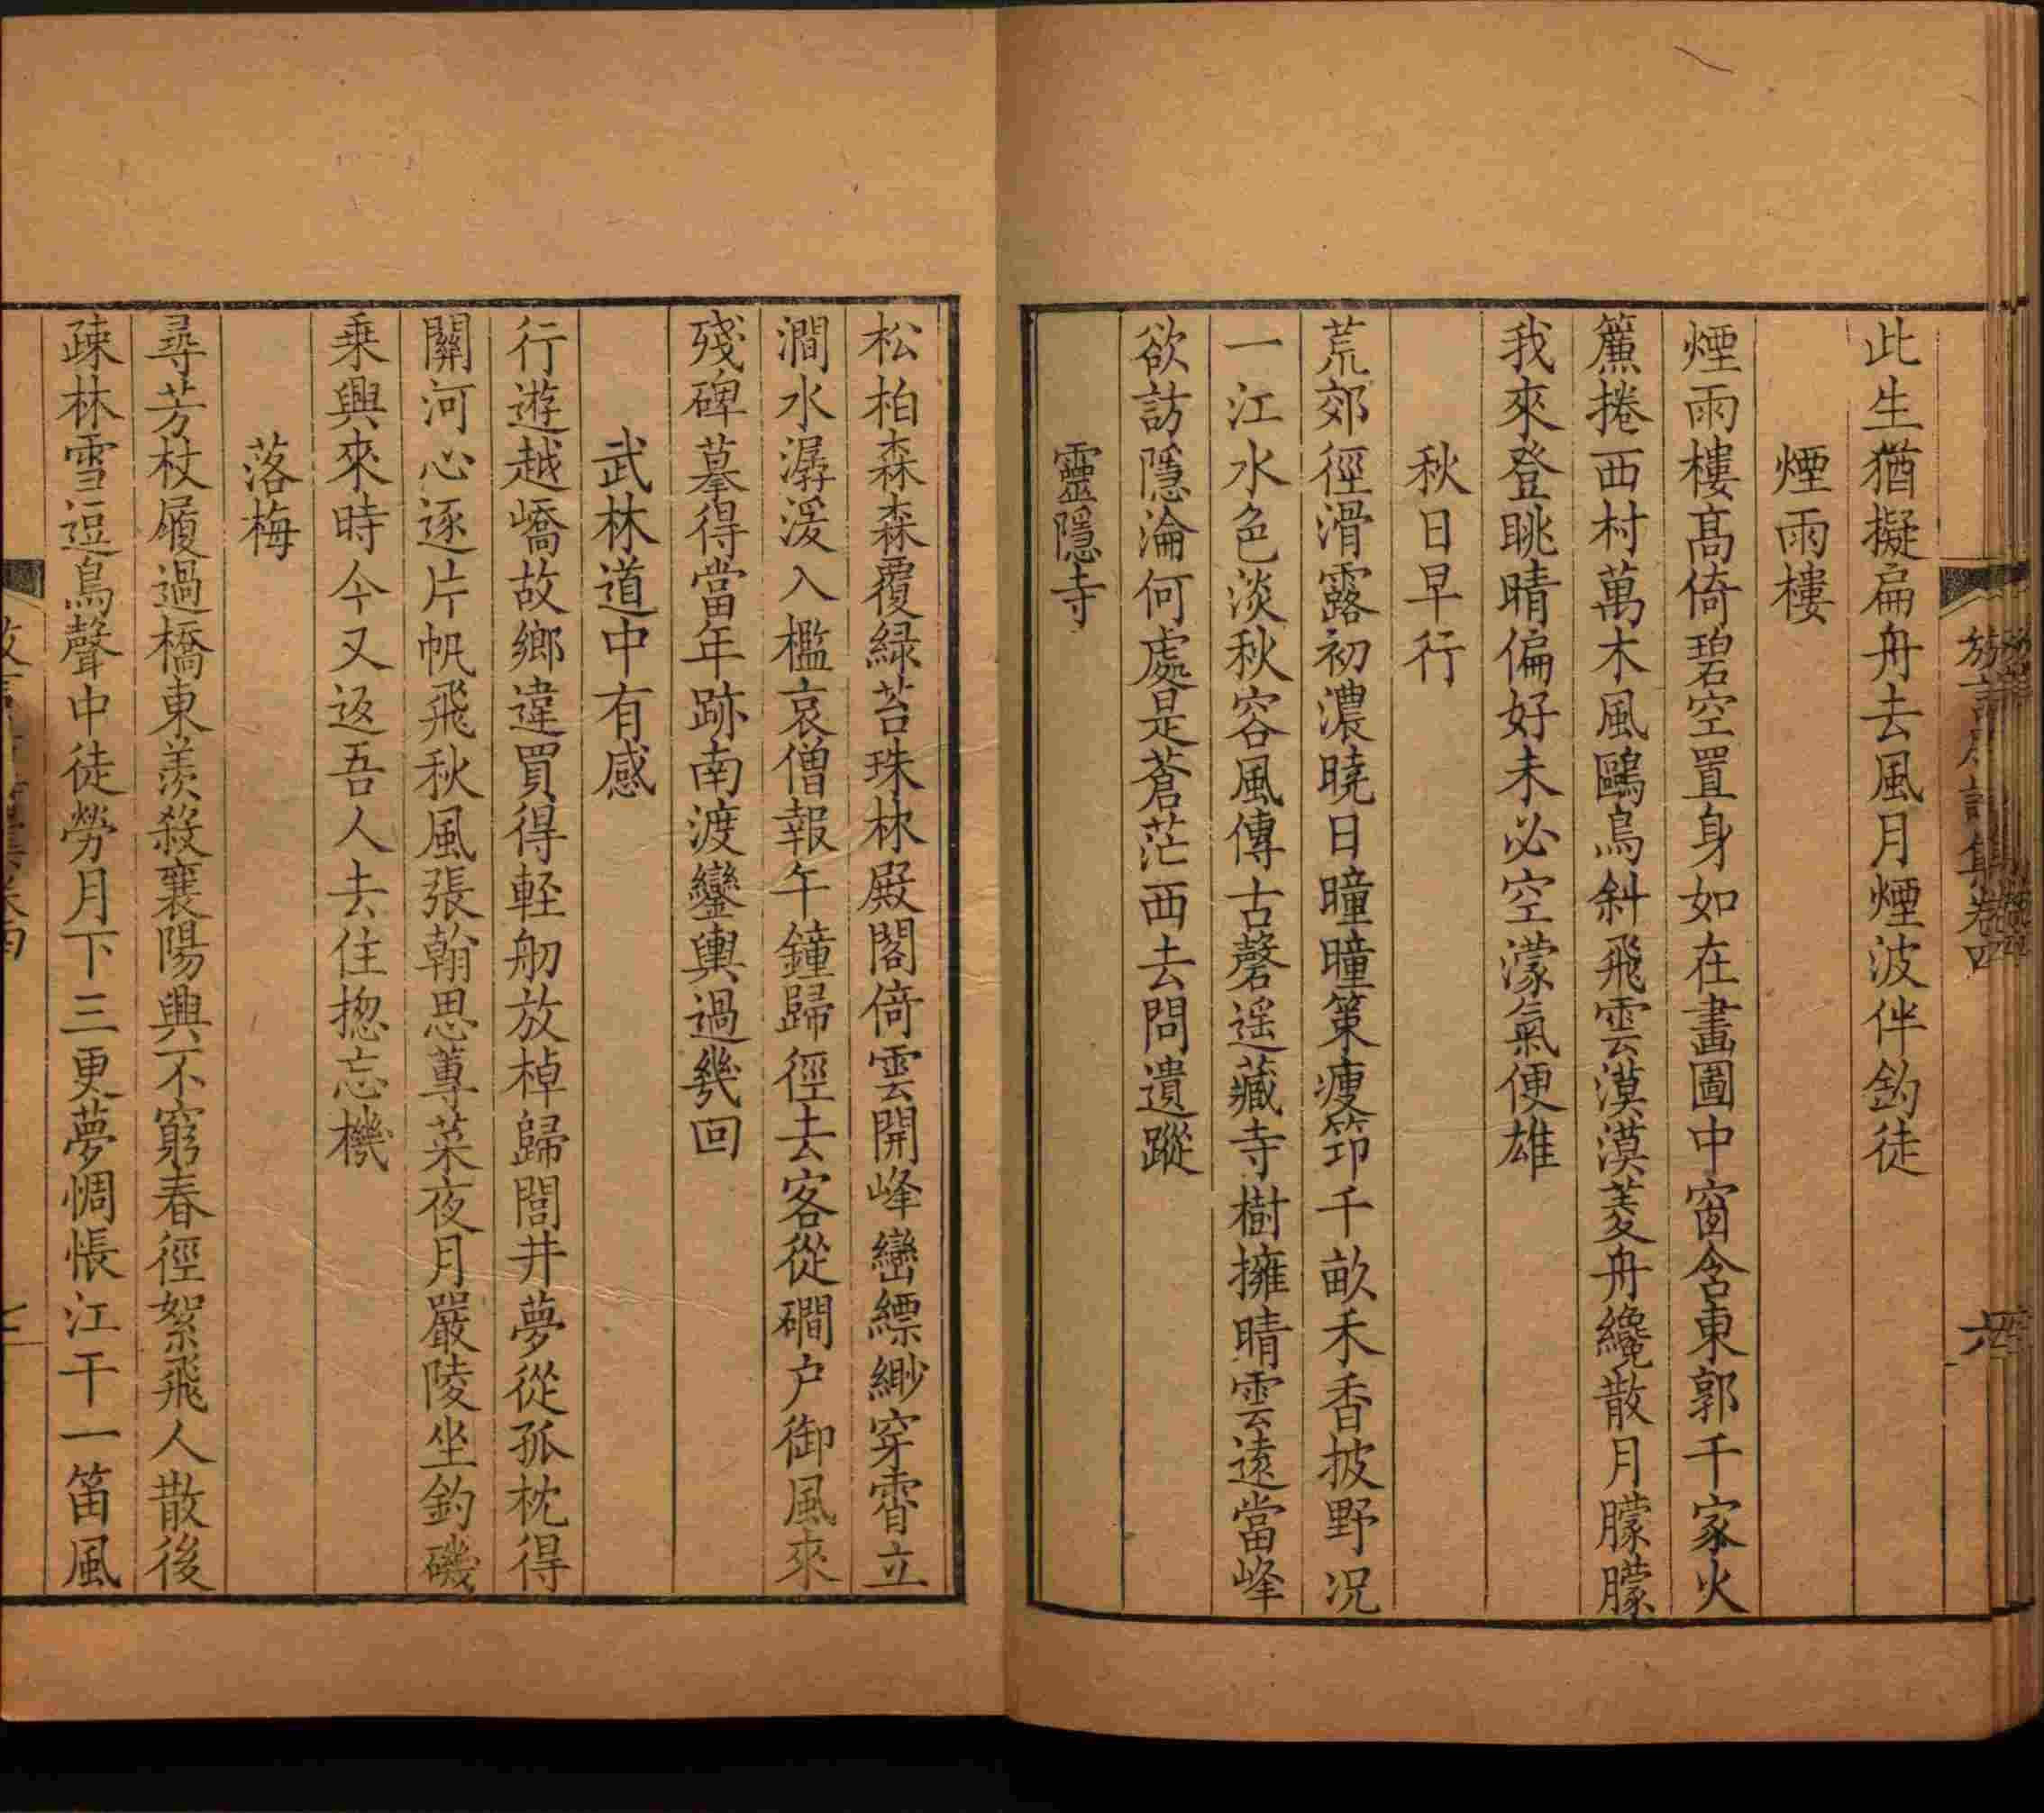 此生猶擬扁舟去風月煙波伴釣徒
煙雨樓
煙雨樓高倚碧空置身如在畫圖中窗含東郭千家火
簾捲西村萬木風鷗鳥斜飛雲漠漠菱舟纔散月朦朦
我來登眺晴偏好未必空濛氣便雄
秋日早行
荒郊徑滑露初濃曉日曈曈策瘦筇千畝禾香披野況
一江水色淡秋容風傳古磬遥藏寺樹擁晴雲遠當峰
欲訪隱淪何處是蒼茫西去問遺蹤
靈隱寺
六
松柏森森覆緑苔珠林殿閣倚雲開峰巒縹緲穿霄立
澗水潺湲入檻哀僧報午鐘歸徑去客從磵户御風來
殘碑摹得當年跡南渡鑾輿過幾回
武林道中有感
行遊越嶠故鄉違買得輕舠放棹歸閭井夢從孤枕得
關河心逐片帆飛秋風張翰思蓴菜夜月嚴陵坐釣磯
乗興來時今又返吾人去住揔忘機
落梅
尋芳杖履過橋東羨殺襄陽興不窮春徑絮飛人散後
疎林雪逗鳥聲中徒勞月下三更夢惆悵江干一笛風